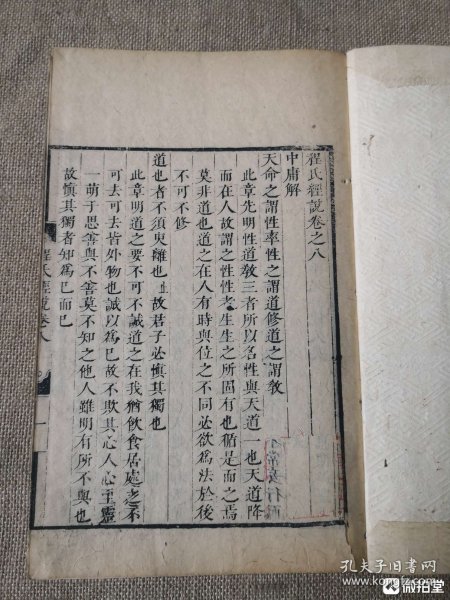 程氏經說卷之八
中庸解
天命之謂性率性之謂道修道之謂教
此章先明性道教三者所以名性與天道一也天道降
而在人故謂之性性者生生之所固有也循是而之焉
莫非道也道之在人有時與位之不同必欲為法於後
不可不修
道也者不須臾離也 故君子必慎其獨也
此章明道之要不可不誠道之在我猶飲食居處之不
可去可去皆外物也誠以為己故不欺其心人心至靈
一萌于思善與不善莫不知之他人雖明有所不與也
故慎其獨者知為己而已
程氏經說卷八
一
孔夫子旧书网
微拍堂